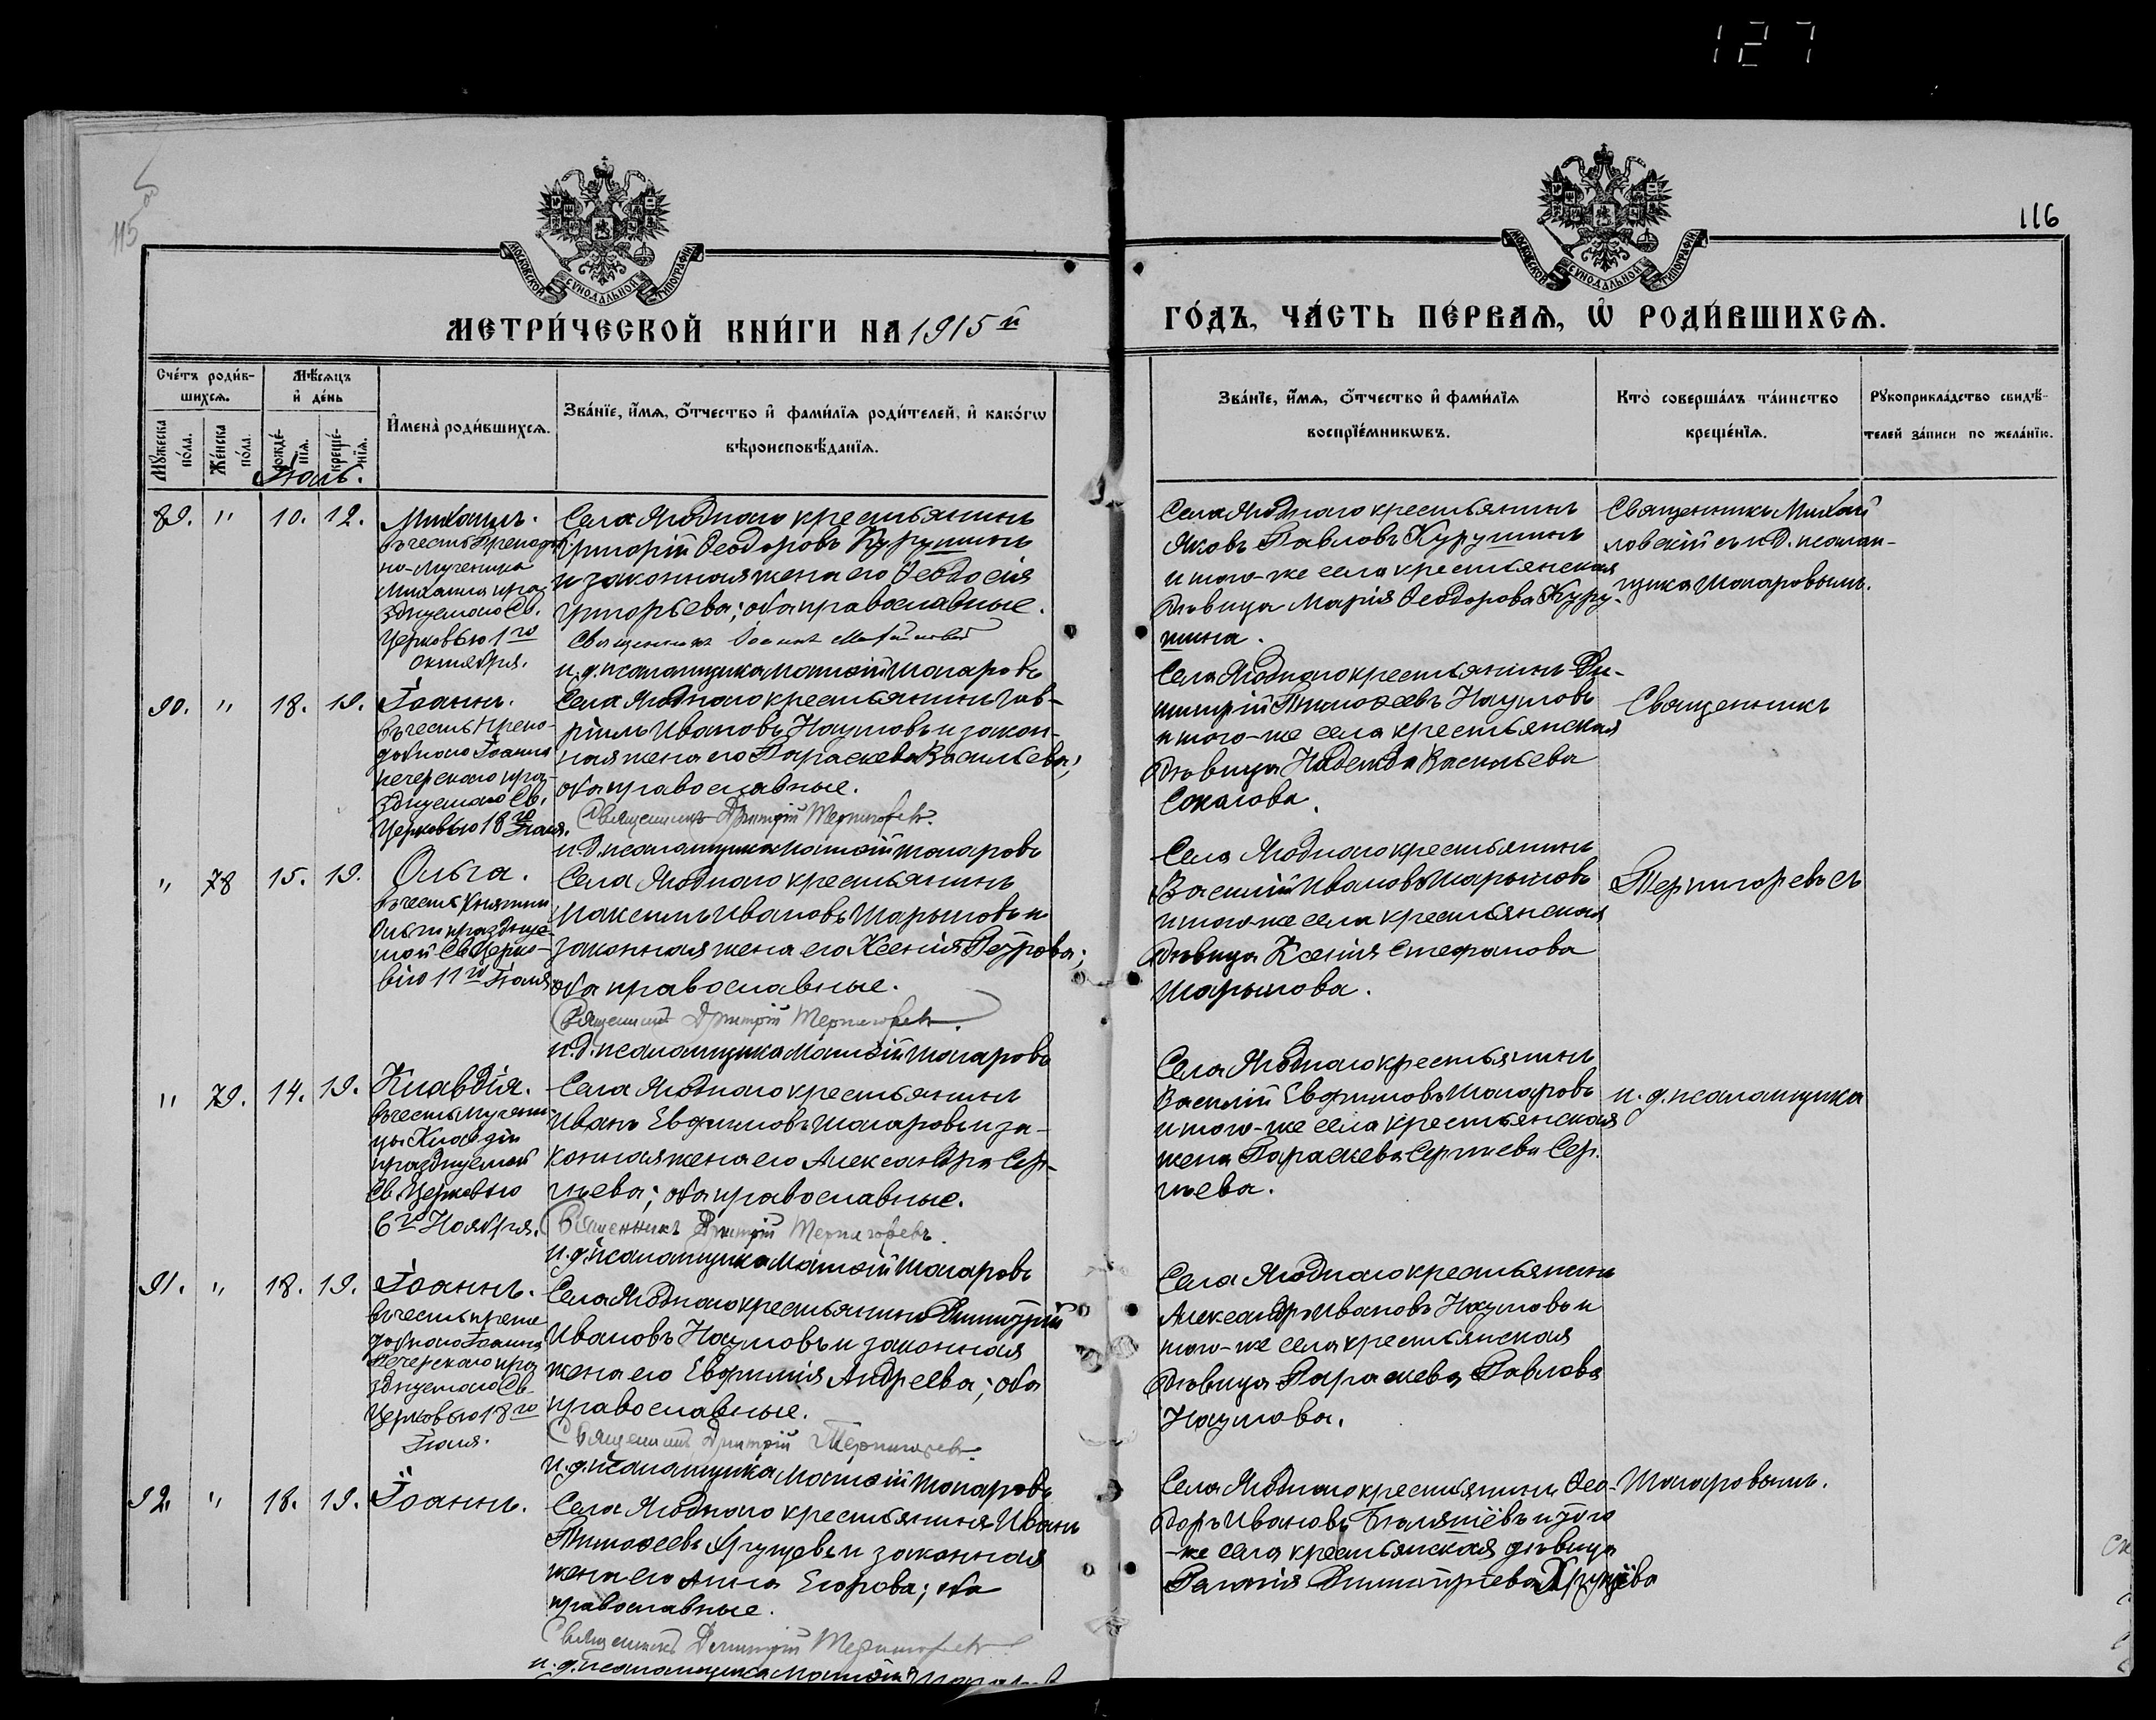 127
115
116
МОСКОВСКОЙ СѴНОДАЛЬНОЙ ТИПОГРАФІИ
МОСКОВСКОЙ СѴНОДАЛЬНОЙ ТИПОГРАФІИ
МЕТРИ́ЧЕСКОЙ КНИ́ГИ НА 1915 й
ГО́ДЪ, ЧА́СТЬ ПЕ́РВАѦ, Ѽ РОДИ́ВШИХСѦ.
Сче́тъ роди́в-
шихсѧ.
Мꙋжеска по́ла.
Же́нска по́ла.
Мѣ́сѧцъ
и҆ де́нь
рожде́-
нїѧ.
креще́-
нїѧ.
И҆мена̀ роди́вшихсѧ.
Зва́нїе, и҆́мѧ, ѻ҆́тчество и҆ фами́лїѧ роди́телей, и҆ како́гѡ
вѣроисповѣ́данїѧ.
Зва́нїе, и҆́мѧ, ѻ҆́тчество и҆ фами́лїѧ
воспрїе́мникѡвъ.
Кто̀ соверша́лъ та́инство
креще́нїѧ.
Рꙋкоприкла́дство свидѣ́-
телей за́писи по жела́нїю.
Іюль.
89. " 10. 12. Михаилъ.
въ честь Преподоб
но-Мученика
Михаила пра-
зднуемаго Св.
Церковью 1го
октября.
Села Ягоднаго крестьянинъ
Григорій Ѳеодоровъ Курушинъ
и законная жена его Ѳеодосія
Григорьева; оба православные.
Священникъ Іоаннъ
и. д. псаломщика Матѳій Шапаровъ
Села Ягоднаго крестьянинъ
Яковъ Павловъ Курушинъ
и того-же села крестьянская
дѣвица Марія Ѳеодорова Куру-
шина.
Священникъ Михай
ловскій съ и д. псалом-
щика Шапаровымъ.
90. " 18. 19. Іоаннъ.
въ честь Препо-
добнаго Іоанна
печерскаго пра-
зднуемаго Св.
Церковью 18го Іюля.
Села Ягоднаго крестьянинъ Гав-
ріилъ Ивановъ Наумовъ и закон-
ная жена его Параскева Васильева;
оба православные.
Священникъ Дмитрій Терпигорев.
и. д. псаломщика Матѳій Шапаровъ
Села Ягоднаго крестьянинъ Ди-
митрій Тимоѳеевъ Наумовъ
и того-же села крестьянская
дѣвица Надежда Васильева
Соколова.
Священникъ
" 78 15. 19. Ольга.
въ честь Княгини
Ольги празднуе-
мой Св Церко-
вію 11го Іюля
Села Ягоднаго крестьянинъ
Максимъ Ивановъ Шарымовъ и
законная жена его Ксенія Петрова;
оба православные.
Священникъ Дмитрій Терпигорев.
и. д. псаломщика Матѳій Шапаровъ
Села Ягоднаго крестьянинъ
Василій Ивановъ Шарымовъ
и того-же села крестьянская
дѣвица Ксенія Стефанова
Шарымова.
Терпигоревъ съ
" 79. 14. 19. Клавдія.
въ честь Мучени
цы Клавдіи
празднуемой
Св. Церковью
6го Ноября.
Села Ягоднаго крестьянинъ
Иванъ Евфимовъ Шапаровъ и за-
конная жена его Александра Сер-
гѣева; оба православные.
Священникъ Дмитрій Терпигоревъ.
и. д. псаломщика Матѳій Шапаровъ
Села Ягоднаго крестьянинъ
Василій Евфимовъ Шапаровъ
и того-же села крестьянская
жена Параскева Сергѣева Сер-
гѣева.
и. д. псаломщика
91. " 18. 19. Іоаннъ.
въ честь препо
добнаго Іоанна
Печерскаго пра
зднуемаго Св.
Церковью 18го
Іюля.
Села Ягоднаго крестьянинъ Димитрій
Ивановъ Наумовъ и законная
жена его Евфимія Андреева; оба
православные.
Священникъ Дмитрій Терпигорев.
и. д. псаломщика Матѳій Шапаровъ
Села Ягоднаго крестьянинъ
Александръ Ивановъ Наумовъ и
того-же села крестьянская
дѣвица Параскева Павлова
Наумова.
92. " 18. 19. Іоаннъ.
Села Ягоднаго крестьянинъ Иванъ
Тимоѳеевъ Хрущевъ и законная
жена его Анна Егорова; оба
православные.
Священникъ Димитрій Терпигорев
и. д. псаломщика Матѳій
Села Ягоднаго крестьянинъ Ѳео-
доръ Ивановъ и того
-же села крестьянская дѣвица
Димитріева Хрущева
Шапаровымъ.